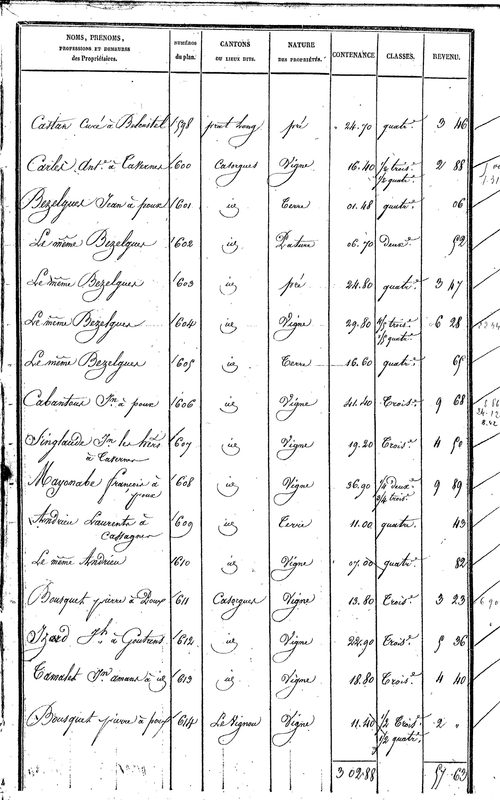 NOMS, PRENOMS, PROFESSIONS ET DEMEURES des Propriétaires. NUMÉROS du plan. CANTONS OU LIEUX DITS. NATURE DES PROPRIÉTÉS. CONTENANCE CLASSES. REVENU.
Castan Curé à 1598 pré 24.70 quatr.e 3 46
Carles Ant.e à 1600 Casorgues Vigne 16.40 1/2 trois.e 2 88
1/2 quatr.e
Bezelgues Jean à poux 1601 id Terre 01.48 quatr.e 06
Le même Bezelgues 1602 id Pature 06.70 Deux.e 52
Le même Bezelgues 1603 id pré 24.80 quatr.e 3 47
Le même Bezelgues 1604 id Vigne 29.80 trois.e 6 28
quatr.e
Le même Bezelgues 1605 id Terre 16.60 quatr.e 65
Cabantous à poux 1606 id Vigne 41.40 Trois.e 9 68
les hers 1607 id Vigne 19.20 Trois.e 4 50
à
Mayonabe françois à 1608 id Vigne 36.90 1/4 Deux.e 9 89
poux 3/4 trois.e
Andrieu Laurent à 1609 id Terre 11.00 quatr.e 43
Cassagnes
Le même Andrieu 1610 id Vigne 07.00 quatr.e 82
Bousquet pierre à 1611 Casorgues Vigne 13.80 Trois.e 3 23
Izard à Goutrens 1612 id Vigne 22.90 Trois.e 5 36
amans à id 1613 id Vigne 18.80 Trois.e 4 40
Bousquet pierre à poux 1614 Le Vignou Vigne 11.40 1/2 Trois.e 2 "
1/2 quatr.e
3 02.88 57 63